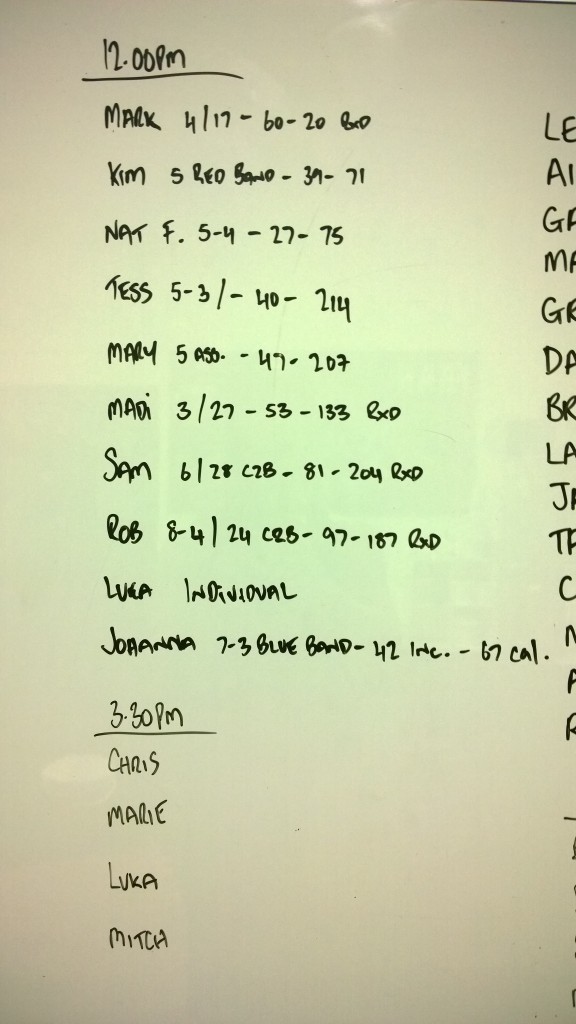 12.00PM
MARK 4/17 - 60-20 RxD
KIM 5 RED BAND - 39- 71
NAT F. 5-4 - 27- 75
TESS 5-3/- 40- 214
MARY 5 ASS. - 47- 207
MADi 3/27 - 53 -133 RxD
SAM 6/28 C2B - 81 - 204 RxD
ROB 8-4/24 C2B- 97-187 RxD
LUKA INDIVIDUAL
JOHANNA 7-3 BLUE BAND- 42 INC. - 67 cal.
3.30PM
CHRIS
MARIE
LUKA
MITCH
LE
AI
GA
MA
GR
DA
BR
LA
JA
TR
C